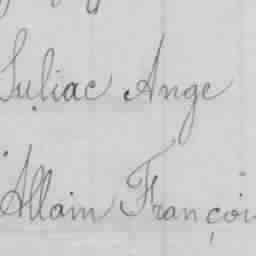 Suliac Ange
Allain Françoi